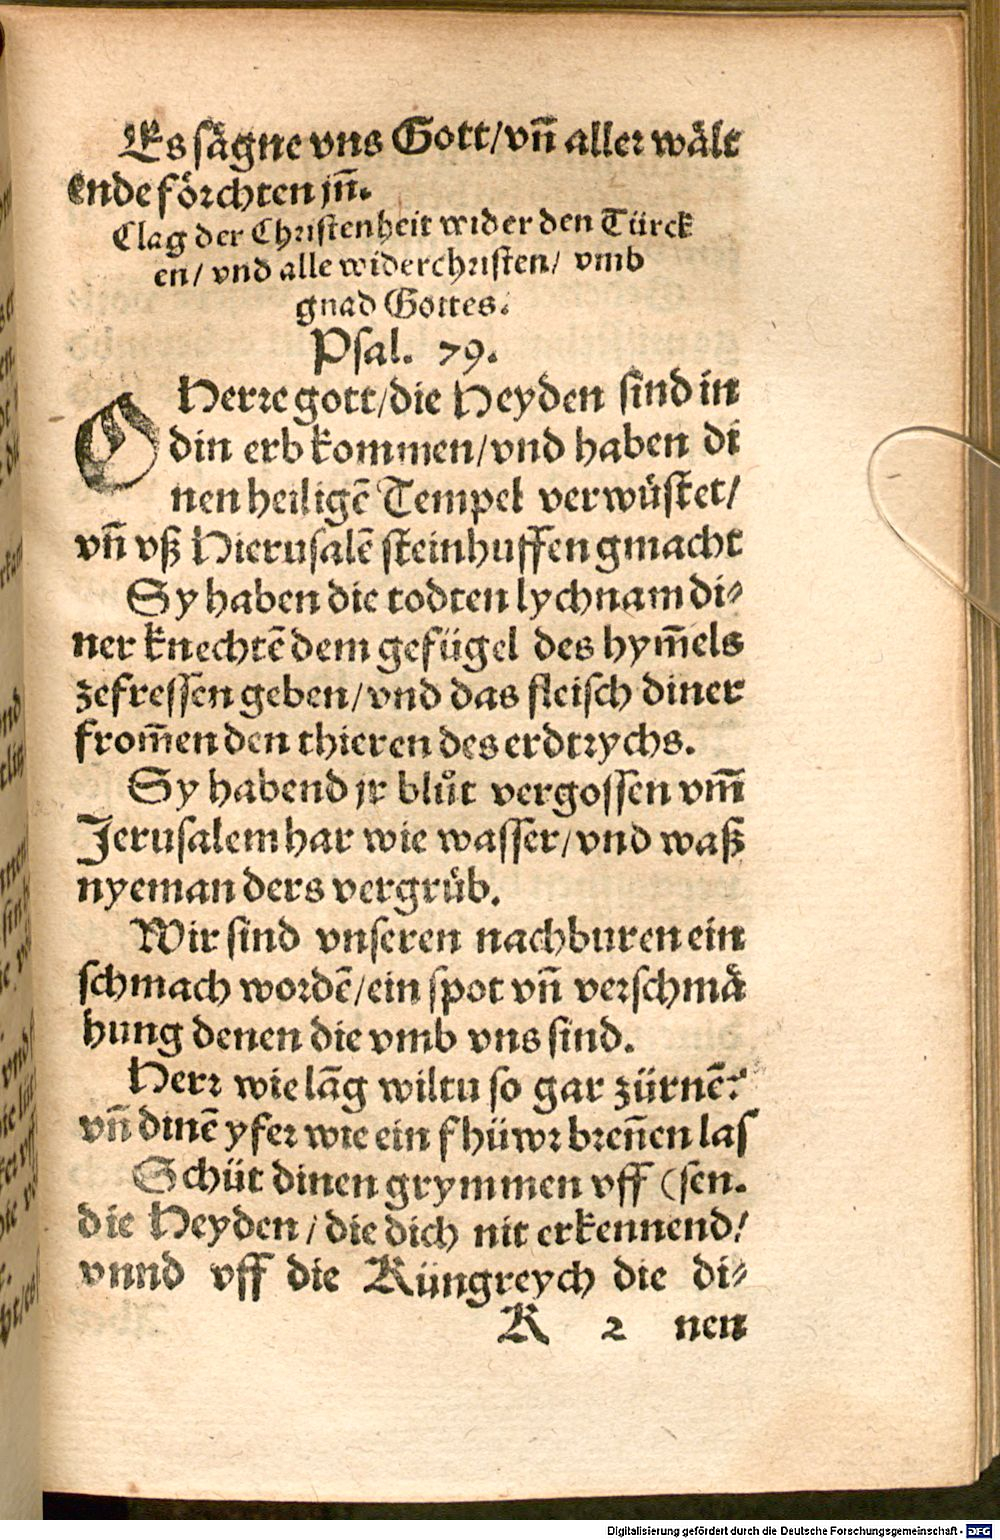 Es sägne vns Gott/ vñ aller wält
ende förchten jñ.
Clag der Christenheit wider den Türck
en/ vnd alle widerchristen/ vmb
gnad Gottes.
Psal. 79.
O Herre gott/ die Heyden sind in
din erb kommen/ vnd haben di
nen heiligē Tempel verwüstet/
vñ vß Hierusalē steinhuffen gmacht
Sy haben die todten lychnam di⸗
ner knechtē dem gefügel des hym̄els
zefressen geben/ vnd das fleisch diner
from̄en den thieren des erdtrychs.
Sy habend jr blůt vergossen vm̄
Jerusalem har wie wasser/ vnd waß
nyeman ders vergrůb.
Wir sind vnseren nachburen ein
schmach wordē/ ein spot vñ verschmä
hung denen die vmb vns sind.
Herr wie lāg wiltu so gar zürnē?
vñ dinē yfer wie ein fhüwr breñen las
Schüt dinen grymmen vff (sen.
die Heyden/ die dich nit erkennend/
vnnd vff die Küngreych die di⸗
K 2 nen
Digitalisierung gefördert durch die Deutsche Forschungsgemeinschaft - DFG